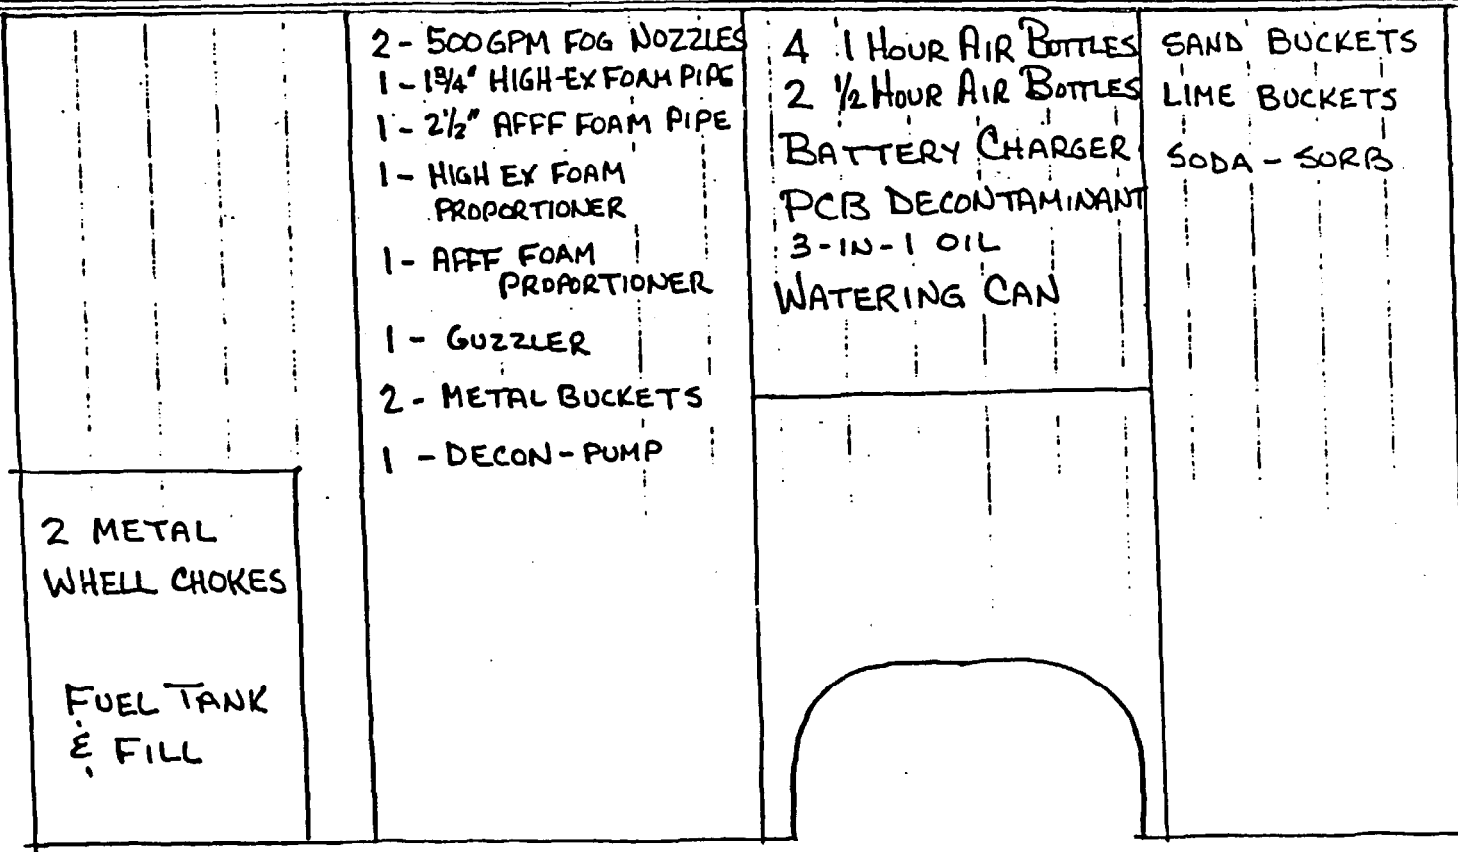 2 METAL
WHELL CHOKES
FUEL TANK
& FILL
2 - 500 GPM FOG NOZZLES
1 - 1 3/4" HIGH-EX FOAM PIPE
1 - 2 1/2" AFFF FOAM PIPE
1 - HIGH EX FOAM
PROPORTIONER
1 - AFFF FOAM
PROPORTIONER
1 - GUZZLER
2 - METAL BUCKETS
1 - DECON-PUMP
4 1 HOUR AIR BOTTLES
2 1/2 HOUR AIR BOTTLES
BATTERY CHARGER
PCB DECONTAMINANT
3-IN-1 OIL
WATERING CAN
SAND BUCKETS
LIME BUCKETS
SODA-SORB